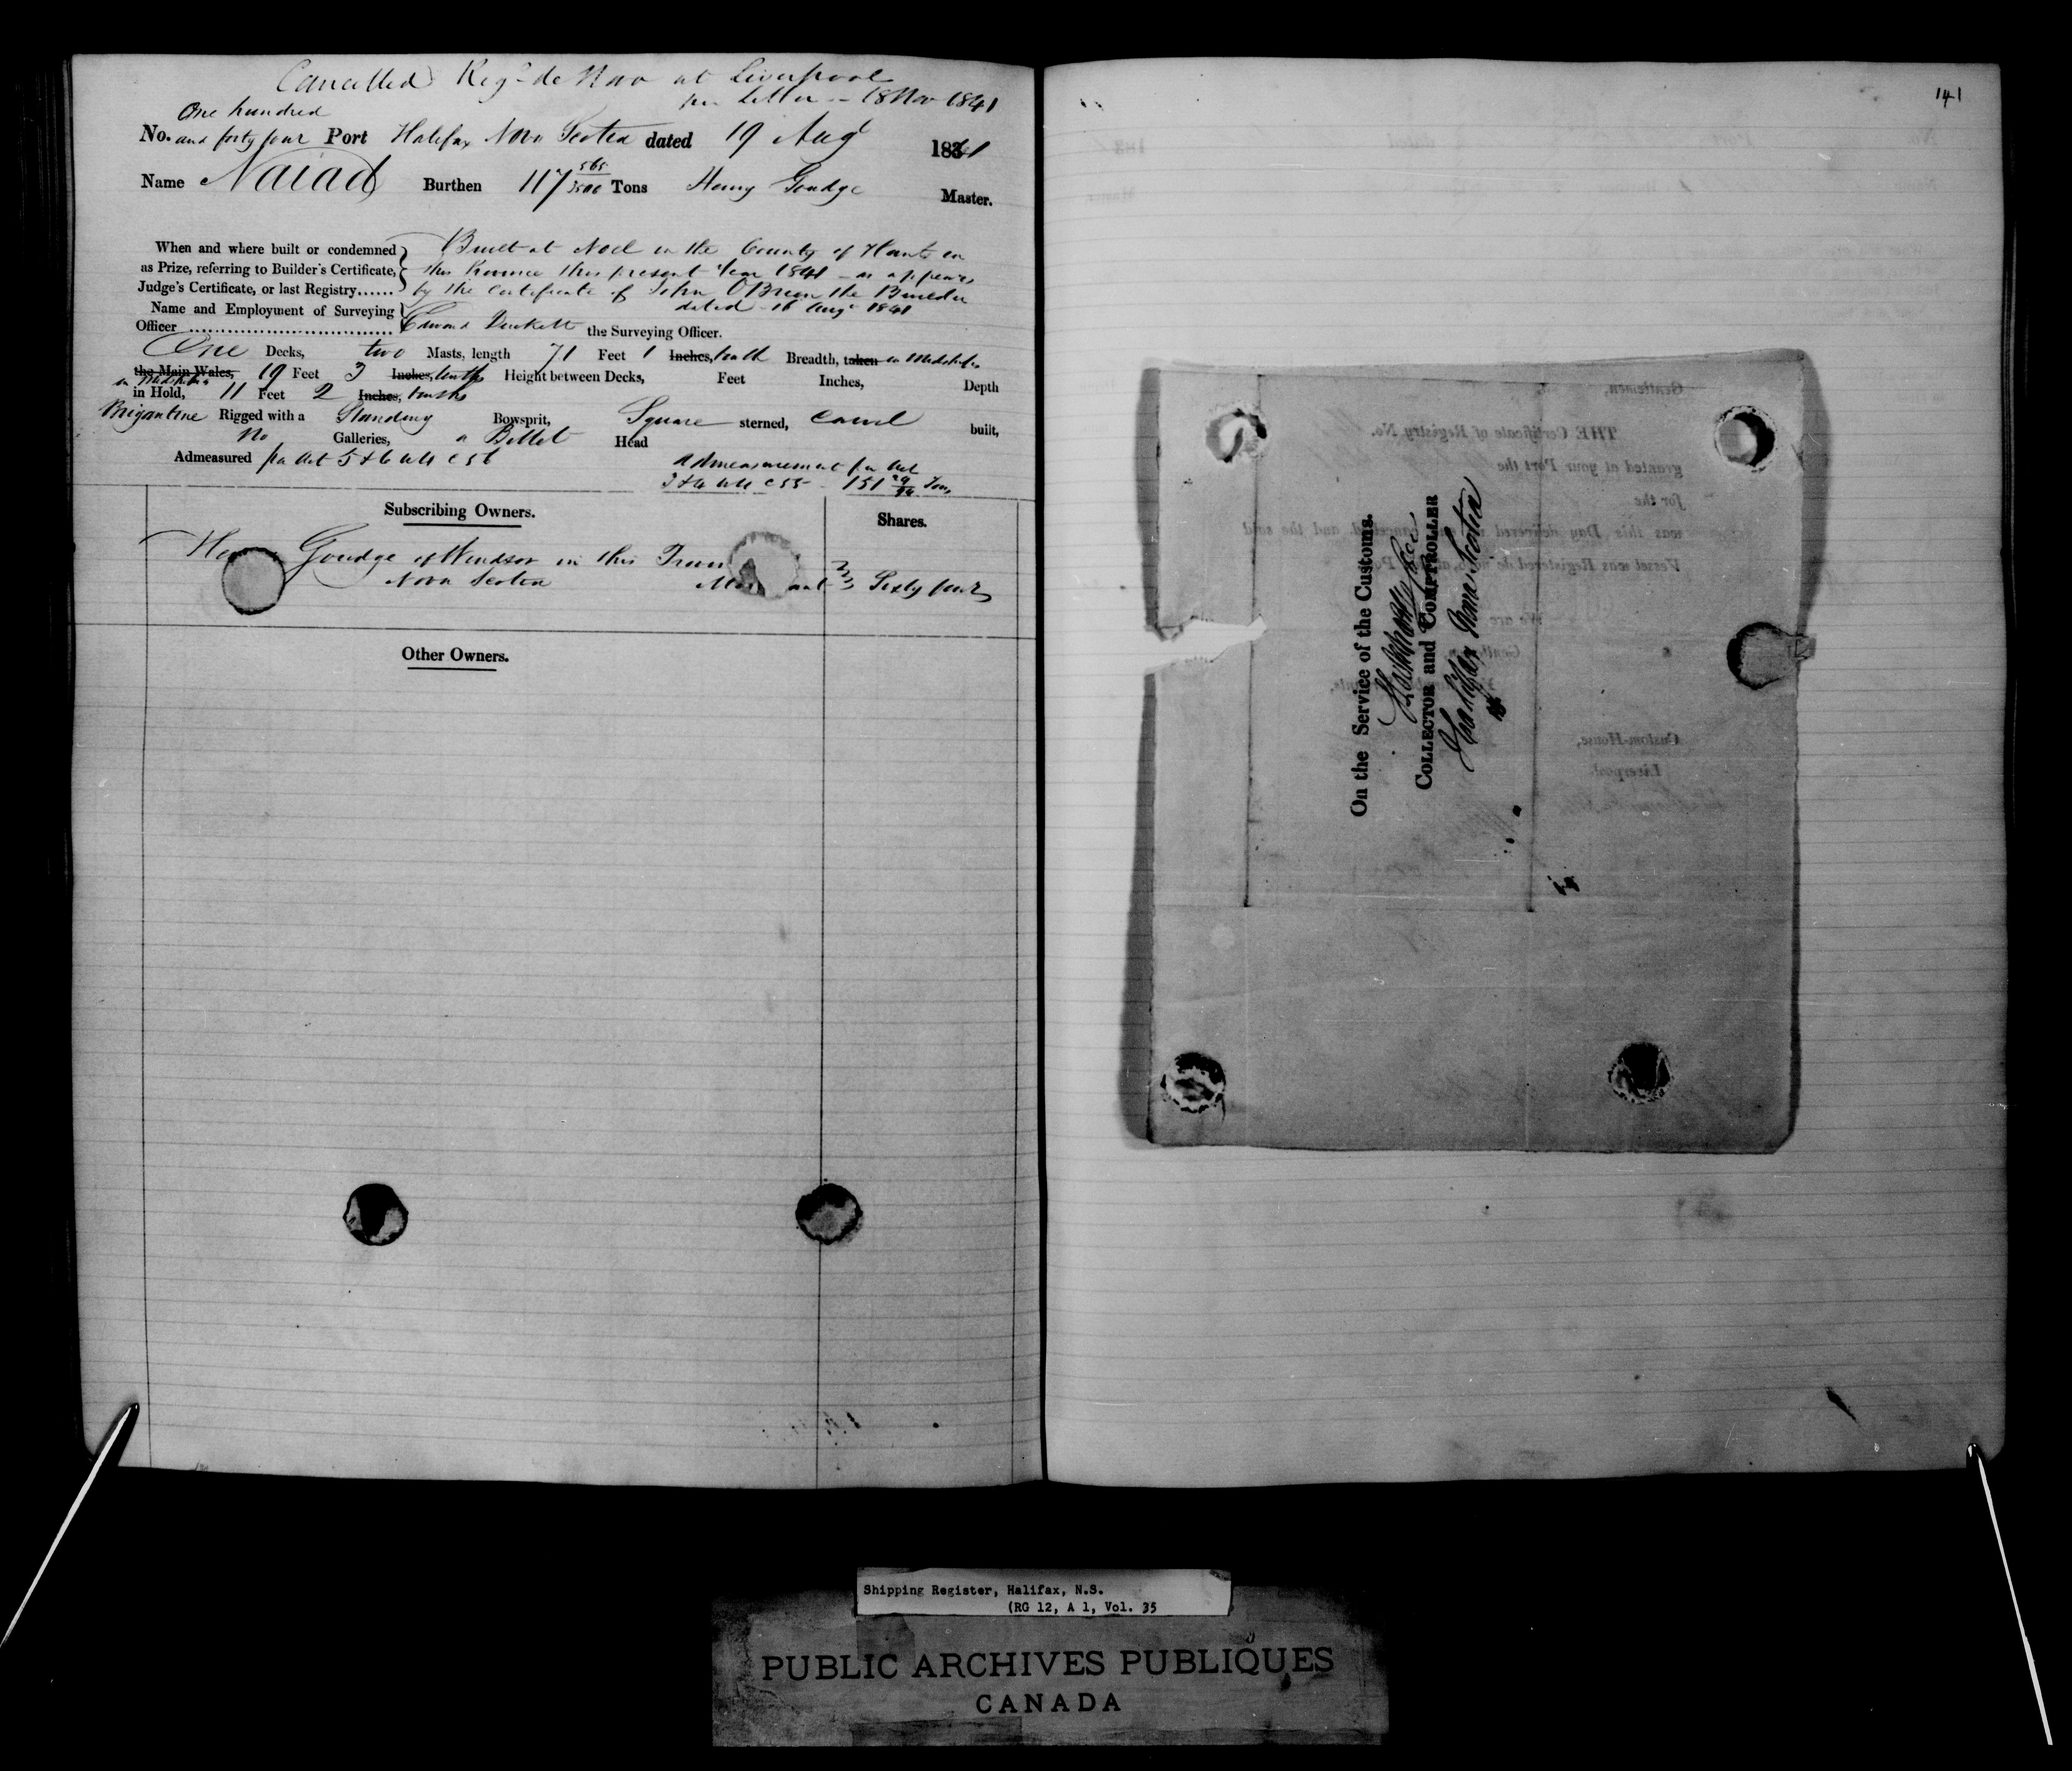 Cancelled Regd de Novo at Liverpool
per Letter - 18 Nov 1841
One hundred
No. and forty four Port Halifax Nova Scotia dated 19 Augt 1841
Name Naiad Burthen 117 565/3500 Tons Henry Goudge Master.
When and where built or condemned
as Prize, referring to Builder's Certificate,
Judge's Certificate, or last Registry......
Built at Noel in the County of Hants in
this Province this present Year 1841 - as appears
by the Certificate of John OBrien the Builder
dated 16 Augt 1841
Name and Employment of Surveying
Officer .............................. Edward the Surveying Officer.
One Decks, two Masts, length 71 Feet 1 Inches, tenth Breadth, taken in Midships
the Main Wales, 19 Feet 3 Inches, tenths Height between Decks, Feet Inches, Depth
in Midships
in Hold, 11 Feet 2 Inches, tenths
Brigantine Rigged with a Standing Bowsprit, Square sterned, Carvel built,
no Galleries, a Billet Head
Admeasured pr Act 5 & 6 Will C 56
Admeasurement pr Act
3 & 4 Will C 55 - 151 /94 Tons
Subscribing Owners.
Shares.
He Goudge of Windsor in this
Nova Scotia Mer ant Sixty four
Other Owners.
141
Gentlemen,
THE Certificate of Registry No.
granted at your Port the
for the
was this Day delivered cancelled, and the said
Vessel was Registered de novo, at Po
We are
Gentlemen,
Custom-House,
Liverpool
On the Service of the Customs.
COLLECTOR and COMPTROLLER
Halifax Nova Scotia
Shipping Register, Halifax, N.S.
(RG 12, A 1, Vol. 35
PUBLIC ARCHIVES PUBLIQUES
CANADA